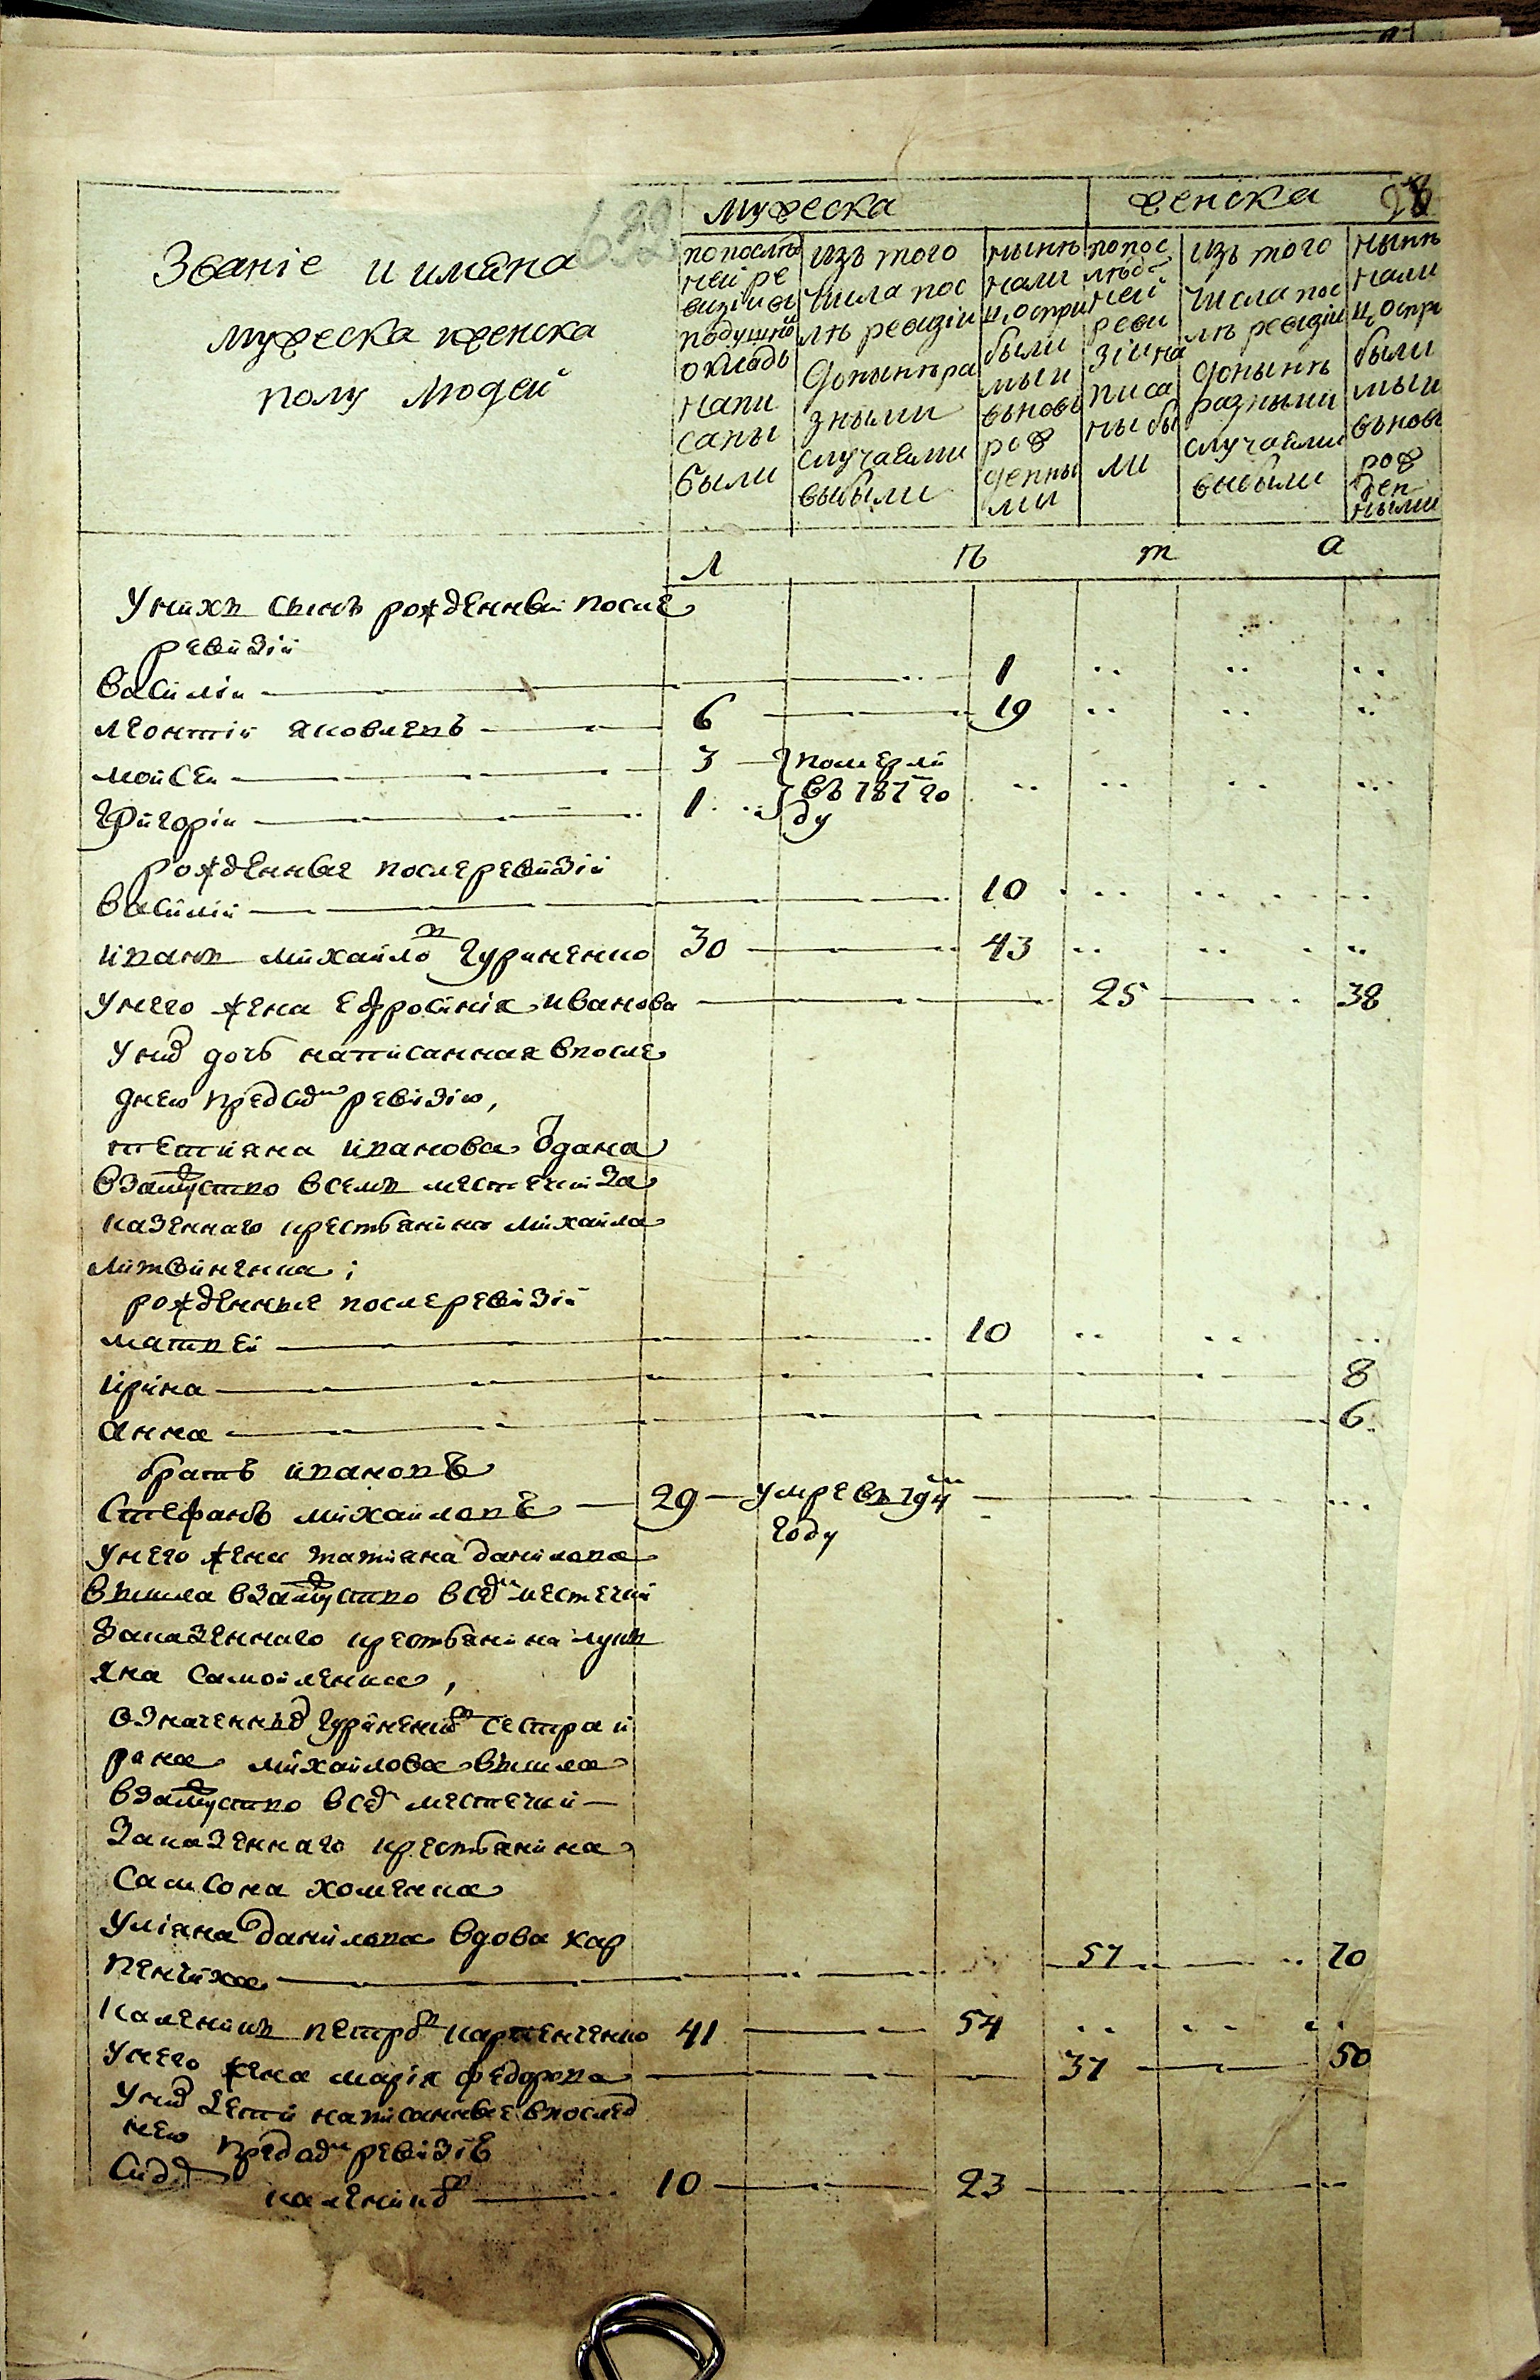 632
98
Званїе и имѣна
мужеска иженска
полу людей
мужеска женска
попослѣд
ней ре
визїивъ
подушнй
окладъ
напи
саны
были
изъ того
числа пос
лѣ ревизїи
донынѣ ра
зными
случаями
выбыли
нынѣ
нали
цоспри
были
мыи
вьновь
рож
денны
ми
попос
лѣд
ней
реви
зїина
писа
ны бы
ли
изъ того
числа пос
лѣ ревизїи
донынѣ
разными
случаями
выбыли
нынѣ
нали
цоспри
были
мыи
вьновь
рож
ден
ными
л ѣ т а
Унихъ сынъ рожденный после
ревизїи
василїи 1
леонтїй яковлевъ 6 19
мойсеи 3 померли
въ 787 го
григорїи 1 ду
рожденные послеревизїи
василїй 10
иванъ михайловъ гуриненко 30 43
унего жена ефросинїя иванова 25 38
уних дочь написанная впосле
днею предсим ревизїю,
тетияна иванова одана
взамуство вселъ местечки за
казенного крестьянина михайла
литвиненка;
рожденные послеревизїи
матвей 10
ирина 8
анна 6
братъ ивановъ
стефанъ михайловъ 29 умре въ 794м
году
унего жена татияна данилова
вышла взамуство всем местечки
заказенного крестьянина лукъ
яна самойленка,
означенных гуриненков сестра и
рина михайлова вышла
взамуство всем местечки
заказенного крестьянина
самсона хоменка
улїяна данилова вдова кар
пенчиха 57 70
каленикъ петров карпенченко 41 54
унего жена марїя федорова 37 50
уних дети написанные впослед
нею предсим ревизїю
Сидор
каленико 10 23